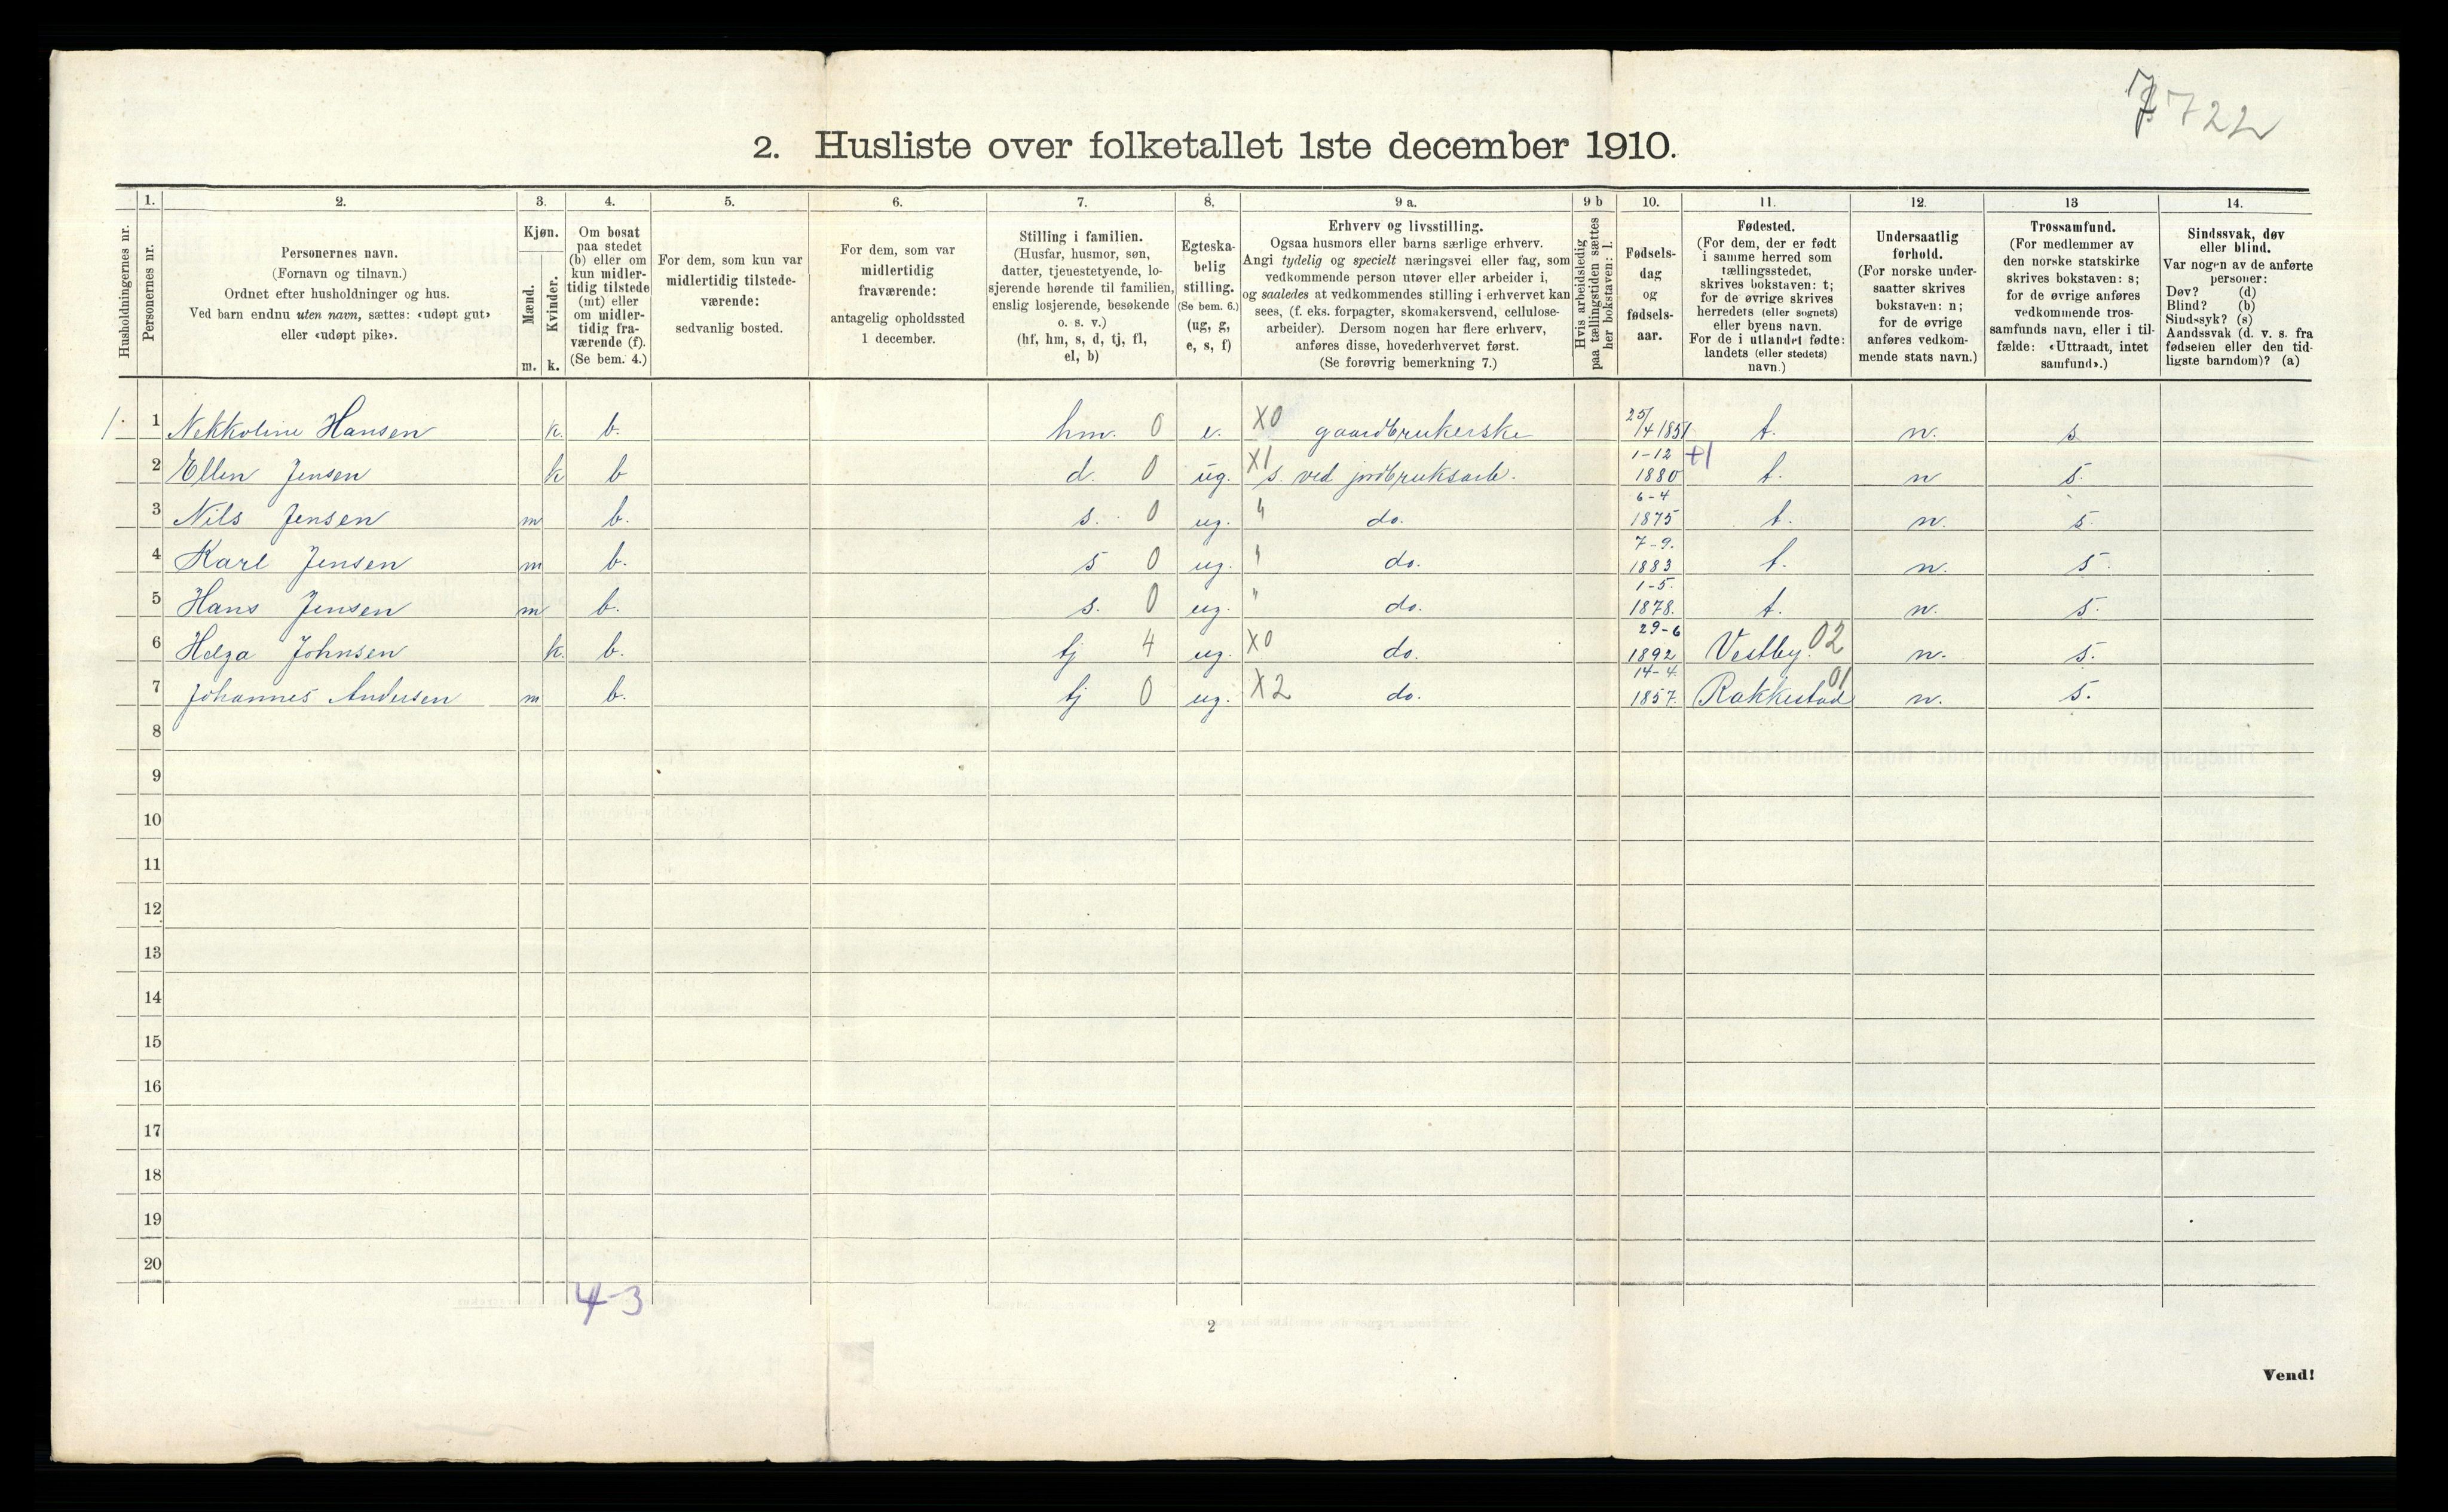 7 722
2. Husliste over folketallet 1ste december 1910.
Husholdningernes nr.
1.
Personernes nr.
2.
Personernes navn.
(Fornavn og tilnavn.)
Ordnet efter husholdninger og hus.
Ved barn endnu uten navn, sættes: «udøpt gut»
eller «udøpt pike».
3.
Kjøn.
Mænd.
Kvinder.
m. k.
4.
Om bosat
paa stedet
(b) eller om
kun midler-
tidig tilstede
(mt) eller
om midler-
tidig fra-
værende (f).
(Se bem. 4.)
5.
For dem, som kun var
midlertidig tilstede-
værende:
sedvanlig bosted.
6.
For dem, som var
midlertidig
fraværende:
antagelig opholdssted
1 december.
7.
Stilling i familien.
(Husfar, husmor, søn,
datter, tjenestetyende, lo-
sjerende hørende til familien,
enslig losjerende, besøkende
o. s. v.)
(hf, hm, s, d, tj, fl,
el, b)
8.
Egteska-
belig
stilling.
(Se bem. 6.)
(ug, g,
e, s, f)
9 a.
Erhverv og livsstilling.
Ogsaa husmors eller barns særlige erhverv.
Angi tydelig og specielt næringsvei eller fag, som
vedkommende person utøver eller arbeider i,
og saaledes at vedkommendes stilling i erhvervet kan
sees, (f. eks. forpagter, skomakersvend, cellulose-
arbeider). Dersom nogen har flere erhverv,
anføres disse, hovederhvervet først.
(Se forøvrig bemerkning 7.)
9 b
Hvis arbeidsledig
paa tællingstiden sættes
her bokstaven: l.
10.
Fødsels-
dag
og
fødsels-
aar.
11.
Fødested.
(For dem, der er født
i samme herred som
tællingsstedet,
skrives bokstaven: t;
for de øvrige skrives
herredets (eller sognets)
eller byens navn.
For de i utlandet fødte:
landets (eller stedets)
navn.)
12.
Undersaatlig
forhold.
(For norske under-
saatter skrives
bokstaven: n;
for de øvrige
anføres vedkom-
mende stats navn.)
13
Trossamfund.
(For medlemmer av
den norske statskirke
skrives bokstaven: s;
for de øvrige anføres
vedkommende tros-
samfunds navn, eller i til-
fælde: «Uttraadt, intet
samfund».)
14.
Sindssvak, døv
eller blind.
Var nogen av de anførte
personer:
Døv? (d)
Blind? (b)
Sindssyk? (s)
Aandssvak (d. v. s. fra
fødselen eller den tid-
ligste barndom)? (a)
1. 1 Nekkoline Hansen k. b. hm. 0 e. X0 gaardbrukerske 25/4 1851 t. n. s
2 Ellen Jensen k b d. 0 ug. X1 s. ved jordbruksarb. 1-12 1880 +1 t. n s.
3 Nils Jensen m b. s. 0 ug. " do. 6-4 1875 t. n. s
4 Karl Jensen m b. s 0 ug. " do. 7-9. 1883 t. n. s.
5 Hans Jensen m b. s. 0 ug. " do. 1-5. 1878. t. n. s.
6 Helga Johnsen k. b. tj 4 ug. X0 do. 29-6 1892 Vestby. 02 n. s.
7 Johannes Andersen m b. tj 0 ug. X2 do. 14-4. 1857. Rakkestad 01 n. s.
8
9
10
11
12
13
14
15
16
17
18
19
20
4-3
2
Vend!